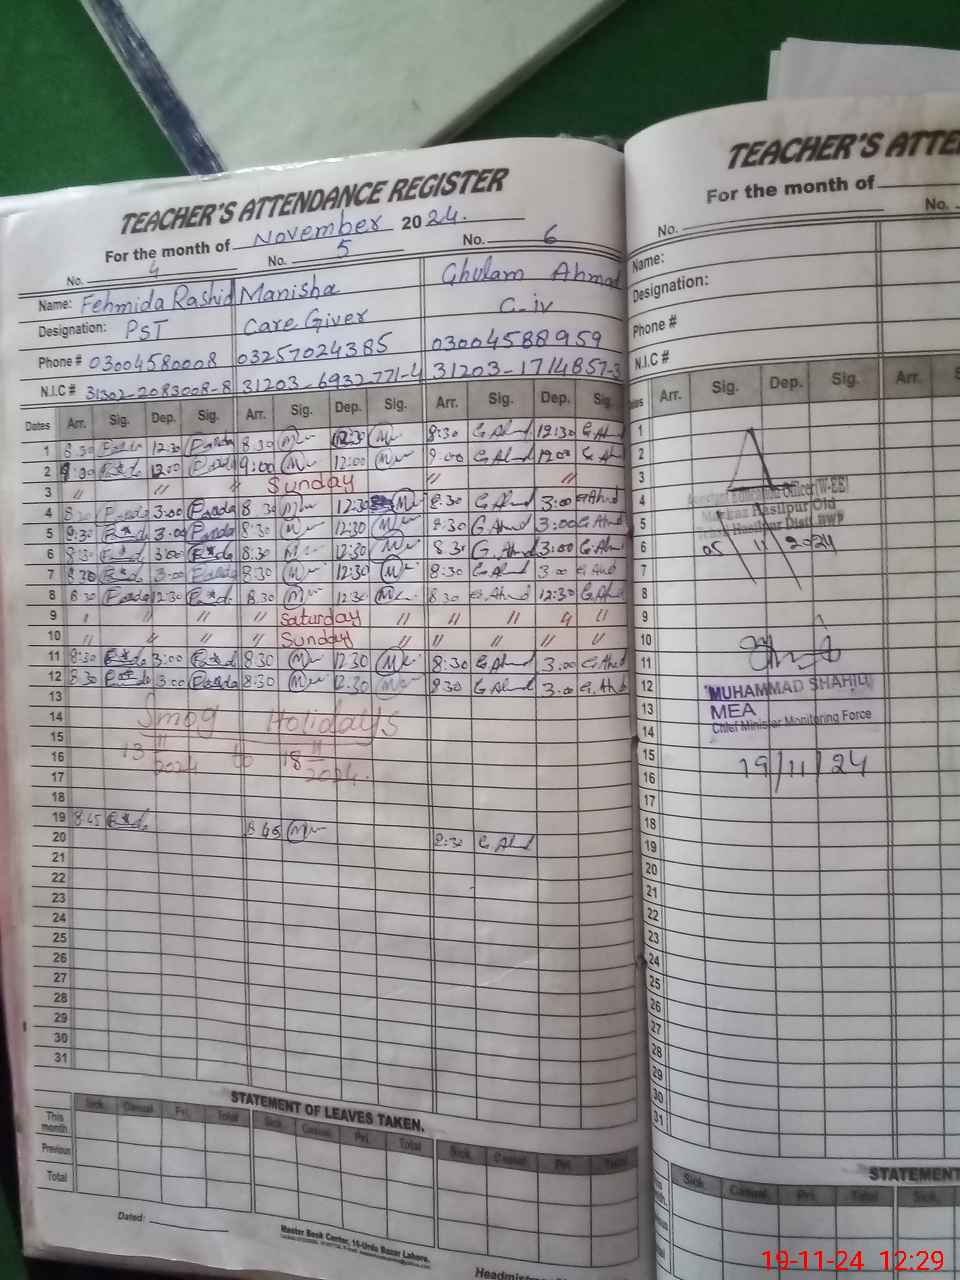 TEACHER'S ATTENDANCE REGISTER
For the month of November 2024.
No. 4 No. 5 No. 6
Name: Fehmida Rashid Manisha Ghulam Ahmad
Designation: PST Care Giver C-iv
Phone # 03004580008 03257024385 03004588959
N.I.C # 31302-2083008-8 31203-6932771-4 31203-1714857-3
Dates Arr. Sig. Dep. Sig. Arr. Sig. Dep. Sig. Arr. Sig. Dep. Sig.
1 8:30 12:30 8:30 12:30 8:30 G Ahmd 12:30 G Ahmd
2 12:00 9:00 12:00 9:00 G Ahmd 12:00 G Ahmd
3 " " " Sunday " "
4 3:00 8:30 12:30 8:30 G Ahmd 3:00 G Ahmd
5 3:00 8:30 12:30 8:30 G. Ahmd 3:00 G Ahmd
6 8:30 3:00 8:30 12:30 8:30 G. Ahmd 3:00 G Ahmd
7 8:30 3:00 8:30 12:30 8:30 G Ahmd 3:00 G Ahmd
8 8:30 12:30 8:30 12:30 8:30 G Ahmd 12:30 G Ahmd
9 " " " " Saturday " " " " "
10 " " " " Sunday " " " " "
11 8:30 3:00 8:30 12:30 8:30 G Ahmd 3:00 G Ahmd
12 8:30 3:00 8:30 12:30 8:30 G Ahmd 3:00 G. Ahmd
13
14 Smog Holidays
15
16 13/11/2024 to 18/11/2024.
17
18
19 8:45 8:45 8:30 G. Ahmd
20
21
22
23
24
25
26
27
28
29
30
31
STATEMENT OF LEAVES TAKEN.
Sick Casual Pri. Total Sick Casual Pri. Total Sick Casual Pri. Total
This month
Previous
Total
Dated:
Master Book Center, 16-Urdu Bazar Lahore.
TEACHER'S ATTE
For the month of
No. No.
Name:
Designation:
Phone #
N.I.C #
Arr. Sig. Dep. Sig. Arr. S
1
2
3
4
Assistant Education Officer (W-EE)
Markaz Hasilpur Old
5
Hasilpur Distt. BWP
6 05 11 2024
7
8
9
10
11
12
MUHAMMAD SHAHID
13 MEA
Chief Minister Monitoring Force
14
15
19/11/24
16
17
18
19
20
21
22
23
24
25
26
27
28
29
30
31
STATEMENT
Sick Casual Pri. Total Sick
19-11-24 12:29